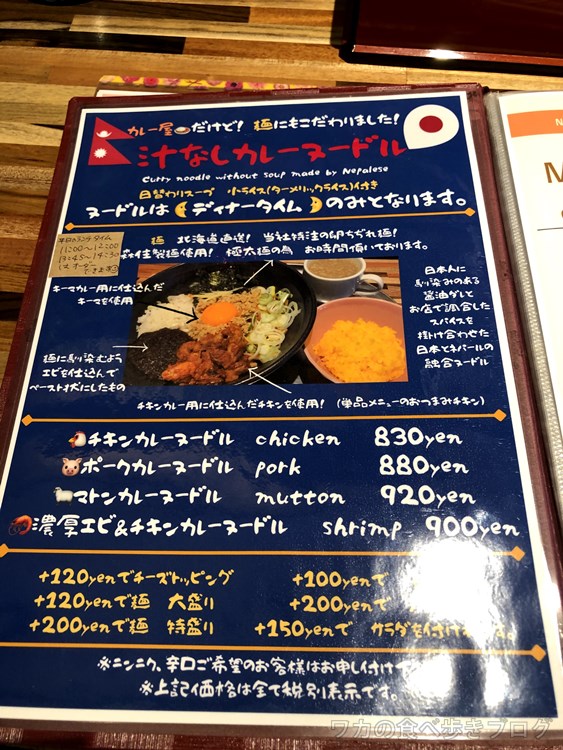 カレー屋だけど! 麺にもこだわりました!
汁なしカレーヌードル
curry noodle without soup made by Nepalese
日替わりスープ 小ライス(ターメリックライス)付き
ヌードルはディナータイムのみとなります。
平日のランチタイム
11:00〜12:00
13:45〜14:30
麺 北海道直送! 当社特注の卵ちぢれ麺!
製麺使用! 極太麺の為 お時間頂いております。
キーマカレー用に仕込んだ
キーマを使用
麺に馴染むよう
エビを仕込んで
ペースト状にしたもの
日本人に
馴染みのある
醤油ダレと
お店で調合した
スパイスを
掛け合わせた
日本とネパールの
融合ヌードル
チキンカレー用に仕込んだチキンを使用! (単品メニューのおつまみチキン)
チキンカレーヌードル chicken 830yen
ポークカレーヌードル pork 880yen
マトンカレーヌードル mutton 920yen
濃厚エビ&チキンカレーヌードル shrimp 900yen
+120yenでチーズトッピング +100yenで
+120yenで麺 大盛り +200yenで
+200yenで麺 特盛り +150yenで サラダを付けれます。
※ニンニク、辛口ご希望のお客様はお申し付け
※上記価格は全て税別表示です。
N
M
ワカの食べ歩きブログ